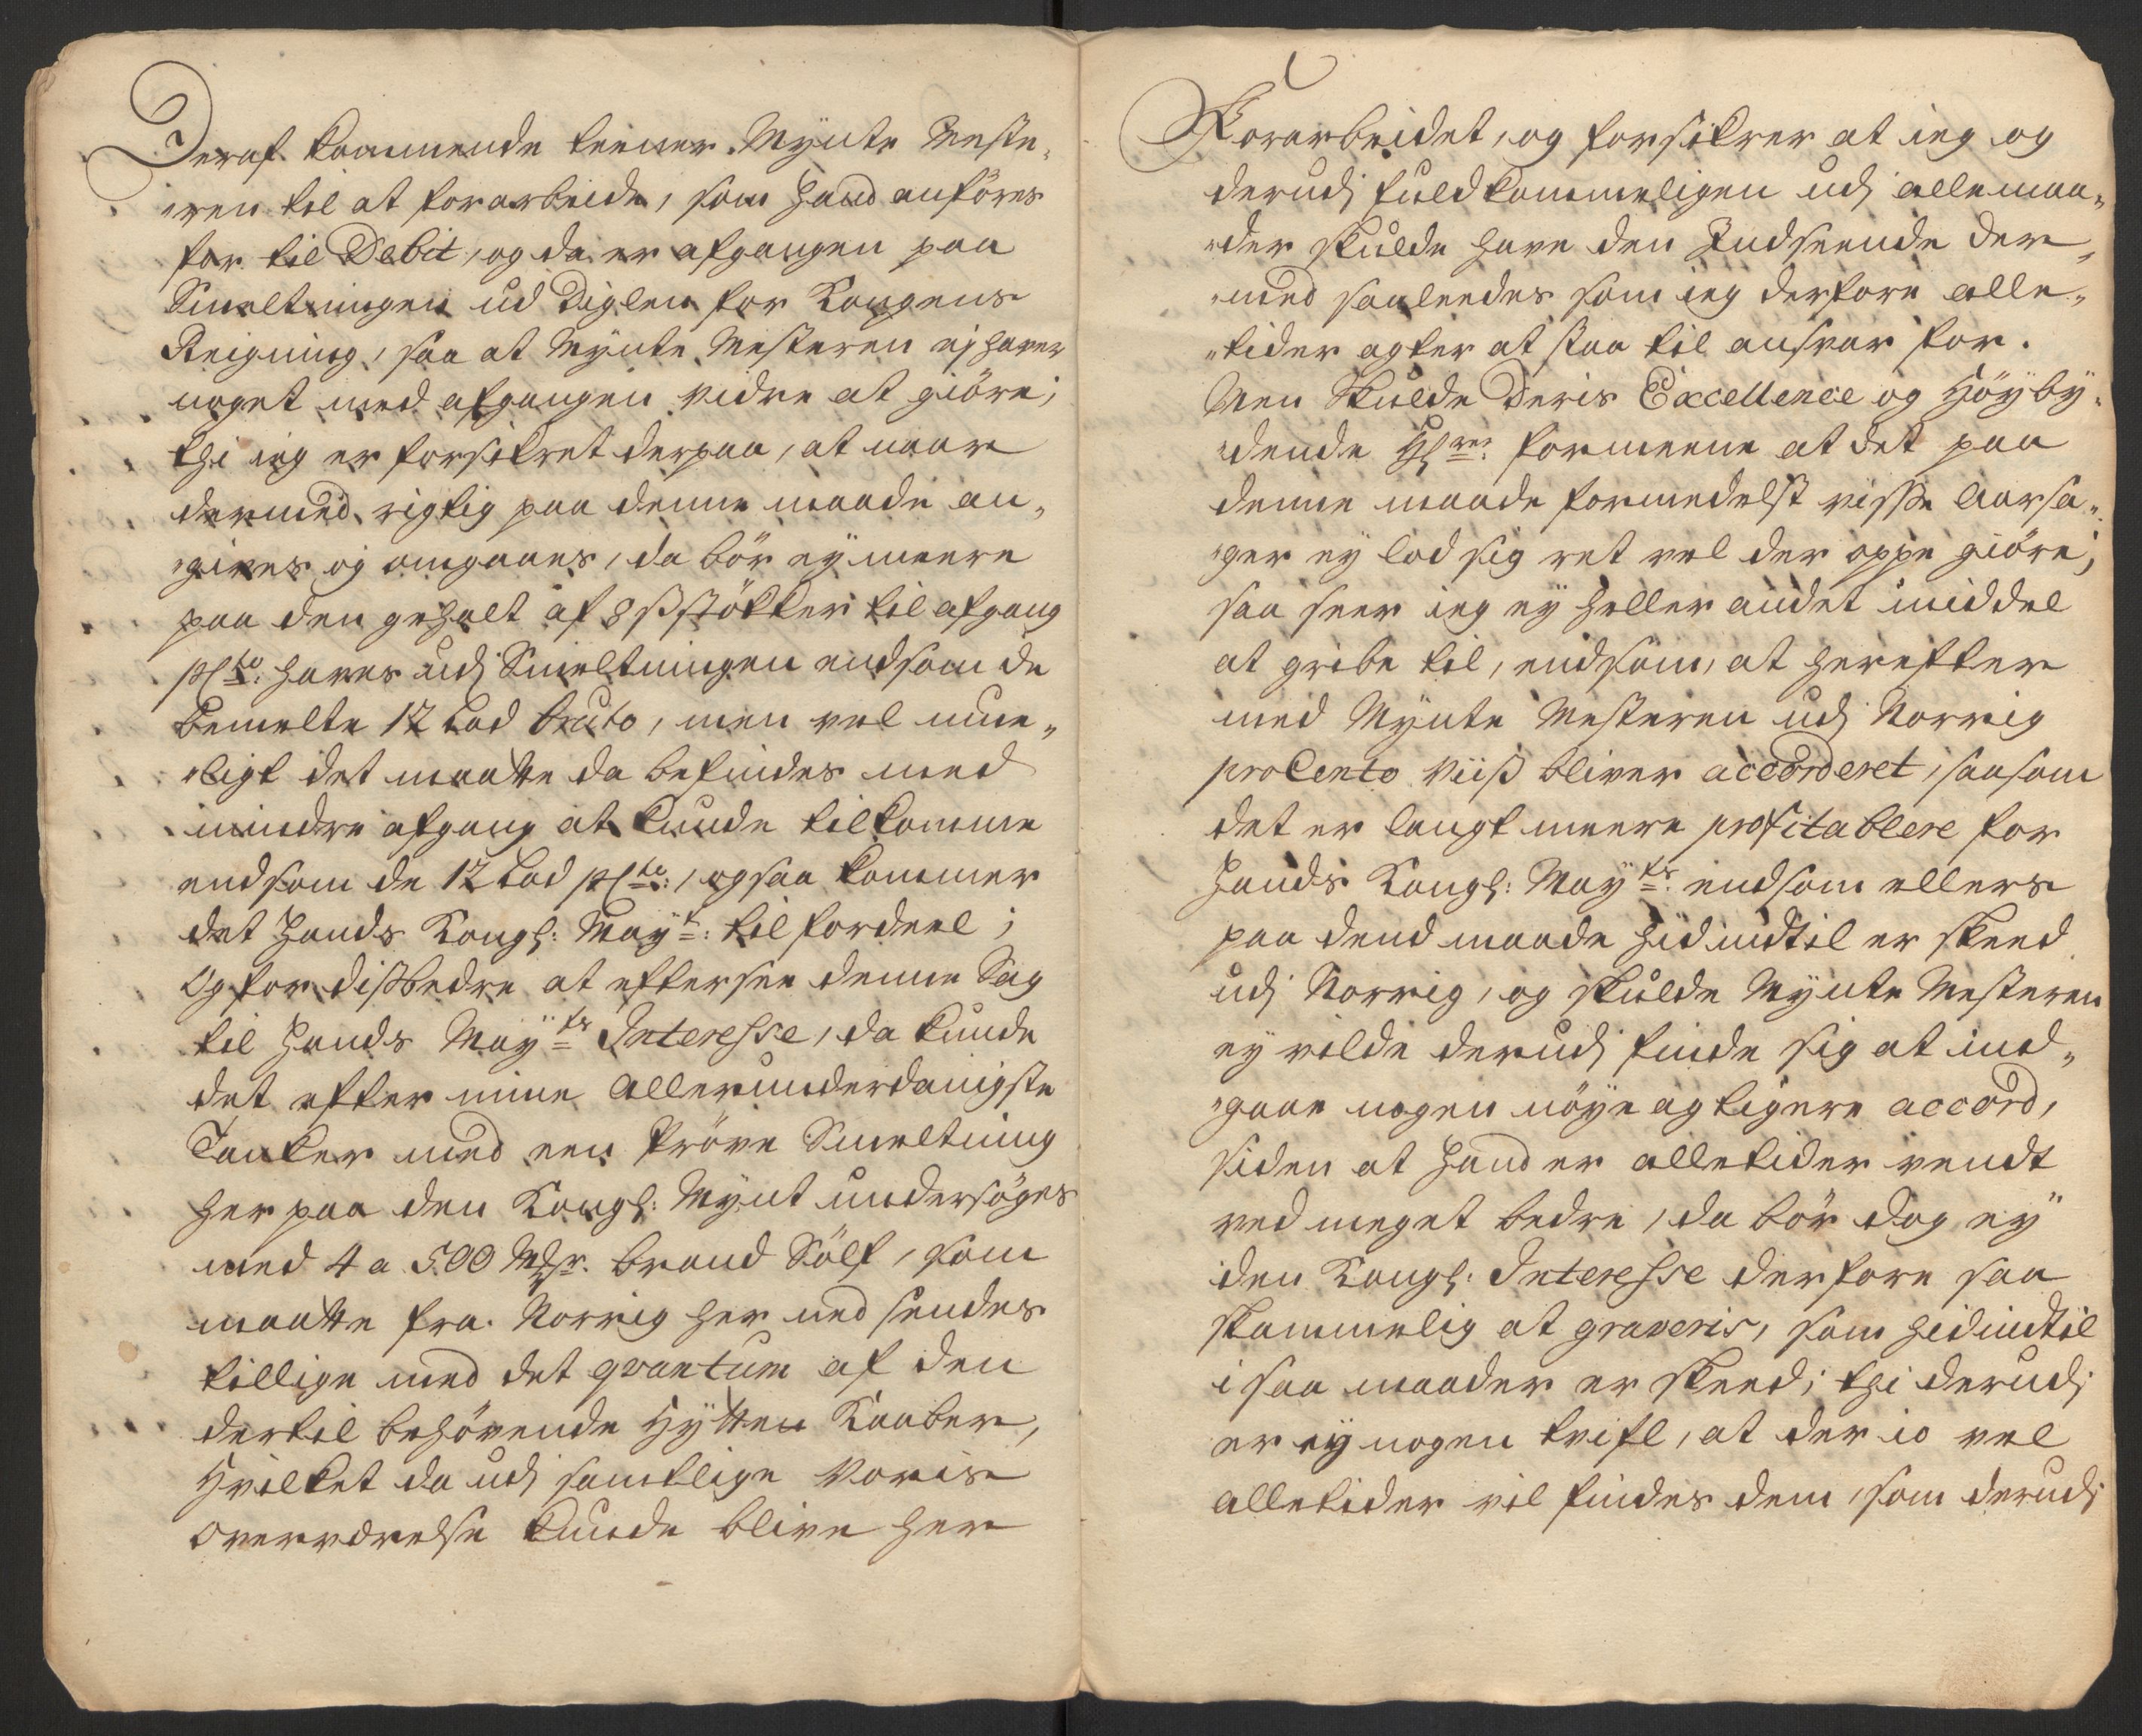 Deraf kommende teener Mynte Meste„
„ren til at forarbeide, som hand anføres
for til Debit, og da er afgangen paa
Smeltningen ud Diglen for Kongens
Reigning, saa at Mynte Mesteren ej haver
noget med afgangen vidre at giöre;
thi ieg er forsikret derpaa, at naar
dermed rigtig paa denne maade an„
„gives og omgaaes, da bör ey meere
paa den gehalt af 8 ß stökker til afgang
haves udj Smeltningen endsom de
bemelte 12 Lod bruto, men vel mue„
„ligt det maatte da befindes med
mindre afgang at kunde tilkomme
endsom de 12 Lod, ogsaa kommer
det Hands Kongl: Mayt: til fordeel;
Og for dißbedre at effter see denne Sag
til Hands Mayts Interesse, da kunde
det effter mine allerunderdanigste
Tanker med een Pröve Smeltning
her paa den Kongl: Mynt undersöges
med 4 a 500 Mk brand Sölf, som
maatte fra Norrig her ned sendes
tillige med det qvantum af den
dertil behövende Hytten Kaaber,
Hvilket da udj samtlige Voris
overværelse kunde blive her
Forarbeidet, og forsikrer at ieg og
derudj fuldkommeligen udj alle maa„
„der skulde have den Indseende der„
„med saaleedes som ieg derfore alle„
„tider agter at staa til ansvar for.
Men Skulde Deris Excellence og Höyby„
„dende Hrr: formeene at det paa
denne maade formedelst visse Aarsa„
„ger ey lod sig ret vel der oppe giöre;
saa seer ieg ey heller andet middel
at gribe til, endsom, at hereffter
med Mynte Mesteren udj Norrig
pro Cento viiß bliver accorderet, saasom
det er langt meere profitablere for
Hands Kongl: Mayts: endsom ellers
paa dend maade hid indtil er skeed
udj Norrig, og skulde Mynte Mesteren
ey vilde derudj finde sig at ind„
„gaae nogen nöye agtigere accord,
siden at hand er alletider vendt
ved meget bedre, da bör dog ey
den Kongl: Interesse derfore saa
skammelig at graveris, som hid indtil
i saa maader er skeed; thi derudj
er ey nogen tvifl, at der io vel
alletider vil findes dem, som derudj